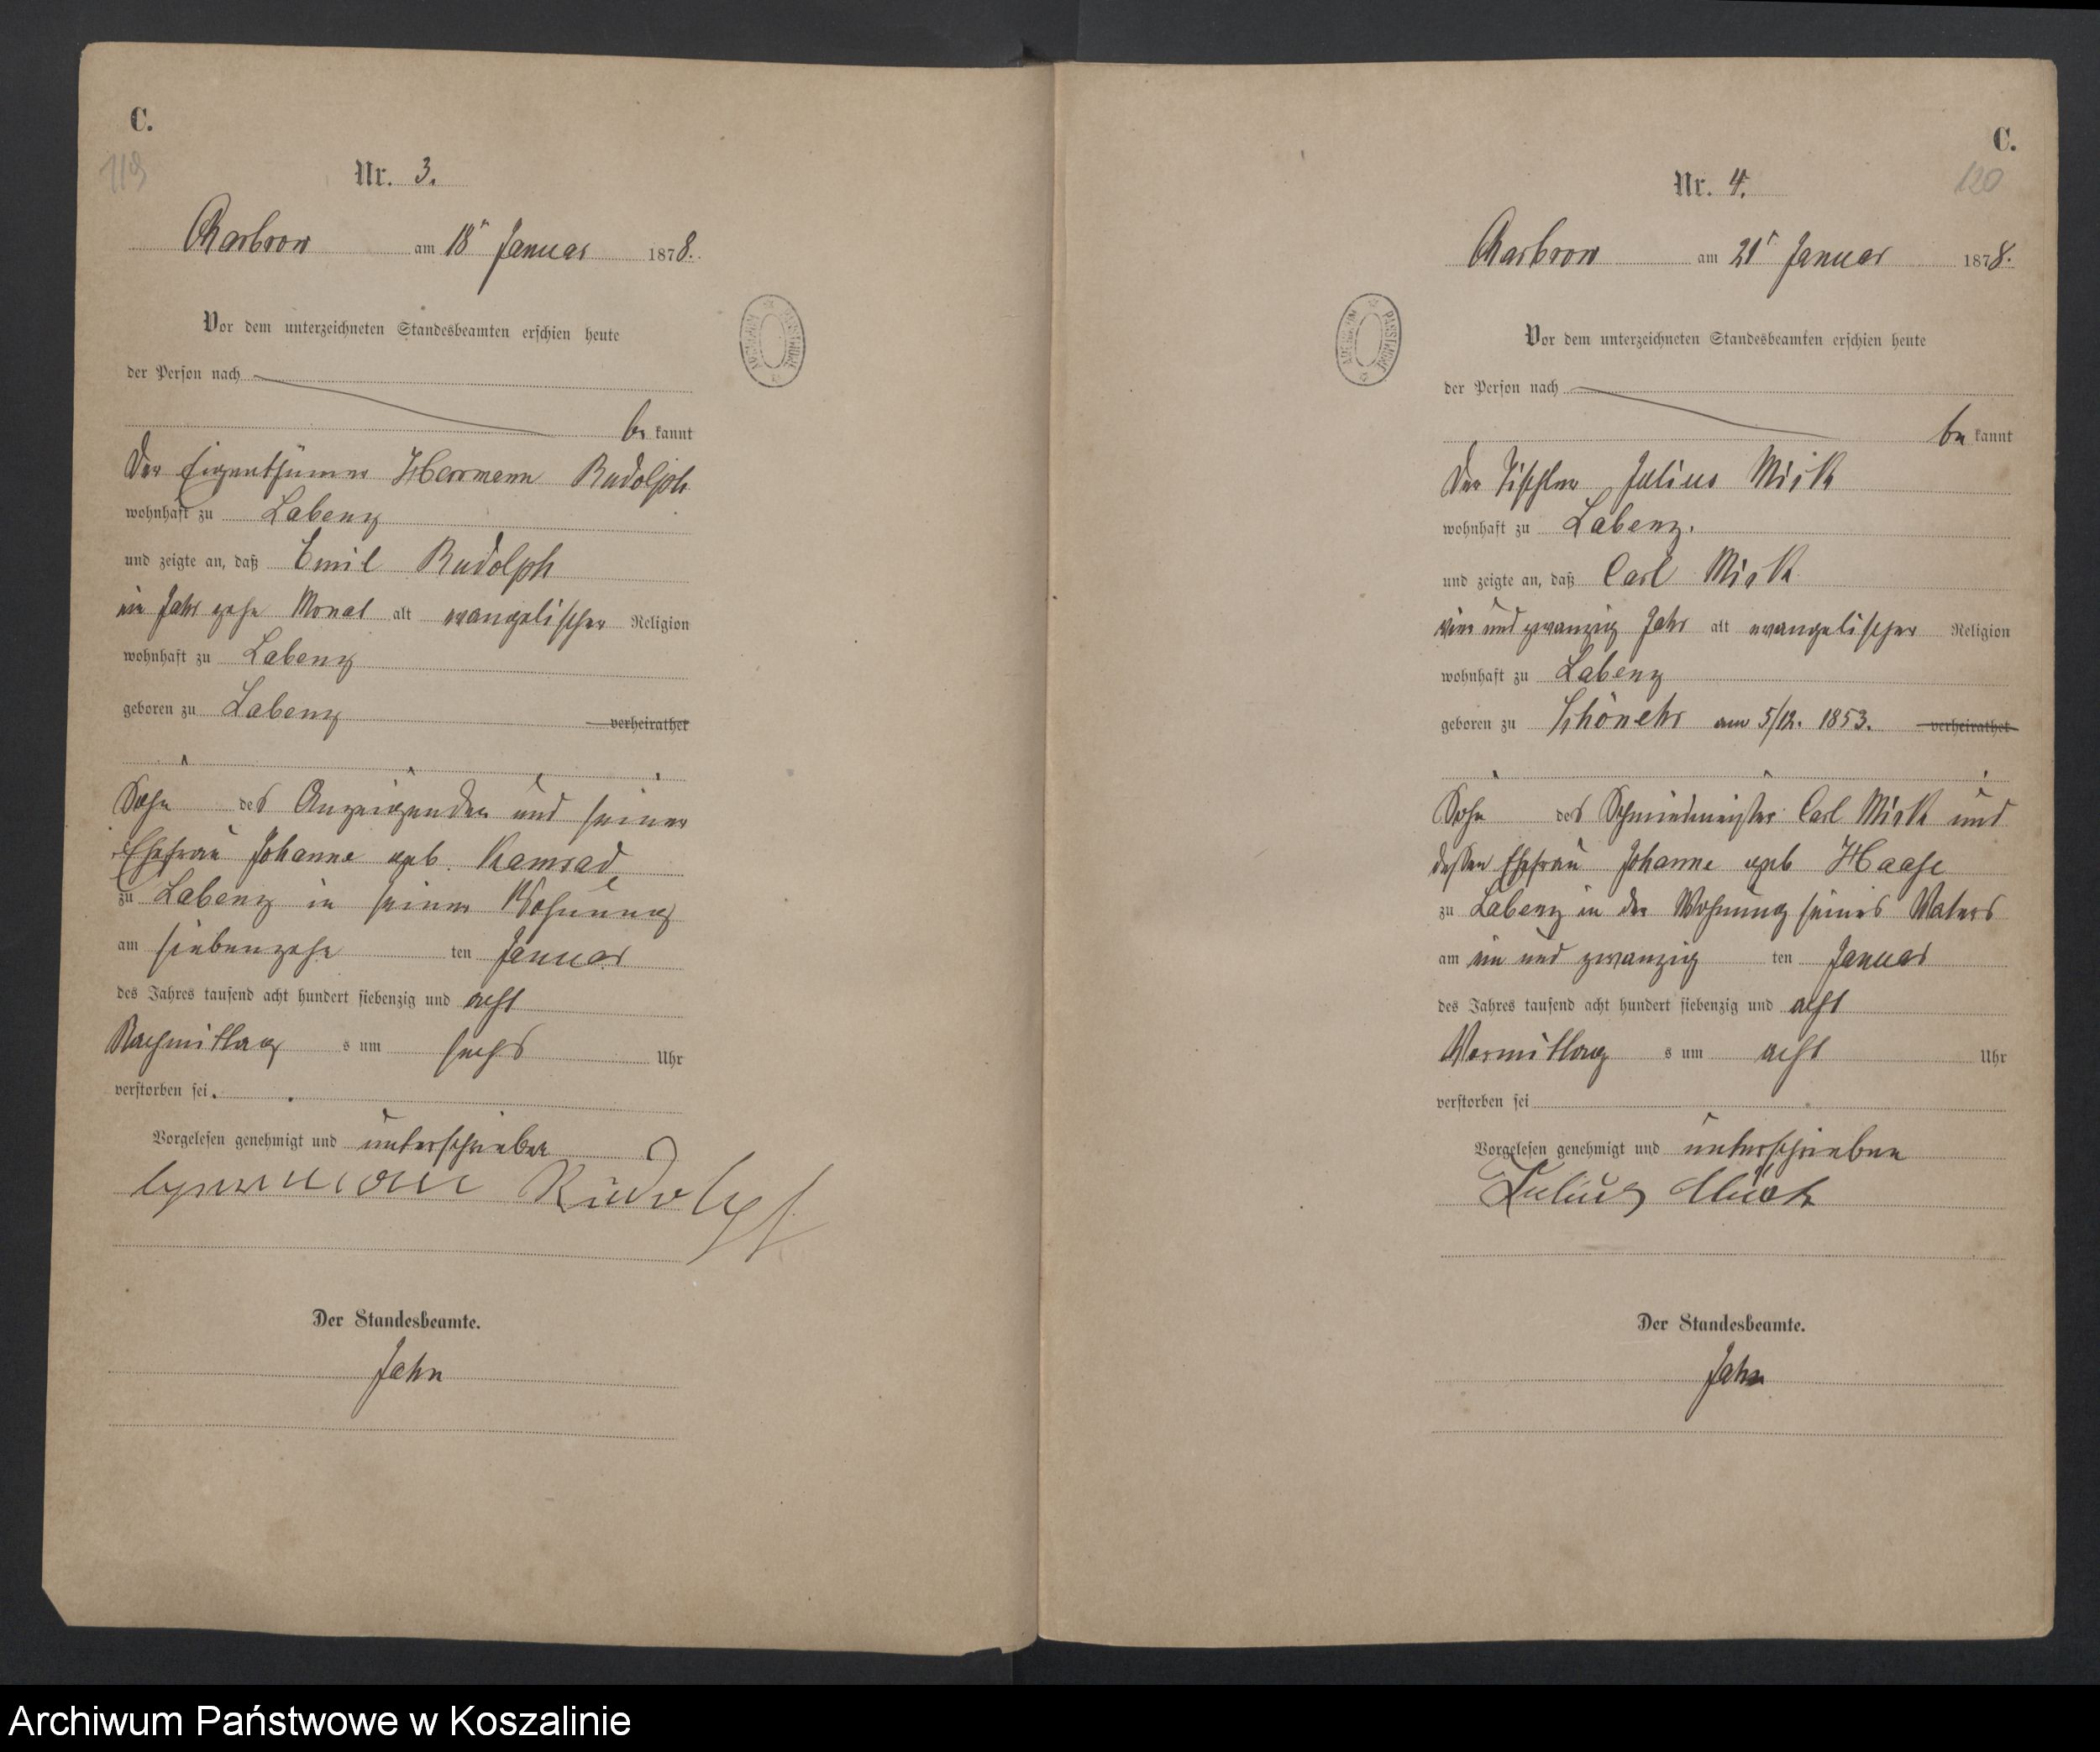 C.
119
Nr. 3.
Charbrow am 18t Januar 1878.
Vor dem unterzeichneten Standesbeamten erschien heute
der Person nach
be kannt
Der Eigenthümer Herrmann Rudolph
wohnhaft zu Labenz
und zeigte an, daß Emil Rudolph
ein Jahr zehn Monat alt evangelischer Religion
wohnhaft zu Labenz
geboren zu Labenz verheirathet
Sohn des Anzeigenden und seiner
Ehefrau Johanne geb. Kamrad
zu Labenz in seiner Wohnung
am siebenzehn ten Januar
des Jahres tausend acht hundert siebenzig und acht
Nachmittag s um sechs Uhr
verstorben sei.
Vorgelesen genehmigt und unterschrieben
Rudolph
Der Standesbeamte.
Jahn
C.
120
Nr. 4.
Charbrow am 21t Januar 1878.
Vor dem unterzeichneten Standesbeamten erschien heute
der Person nach
be kannt
Der Tischler Julius Mirk
wohnhaft zu Labenz.
und zeigte an, daß Carl Mirk
vier und zwanzig Jahr alt evangelischer Religion
wohnhaft zu Labenz
geboren zu Schönehr am 5/12. 1853. verheirathet
Sohn des Schmiedmeister Carl Mirk und
dessen Ehefrau Johanne geb Haase
zu Labenz in der Wohnung seines Vaters
am ein und zwanzig ten Januar
des Jahres tausend acht hundert siebenzig und acht
Vormittag s um acht Uhr
verstorben sei
Vorgelesen genehmigt und unterschrieben
Julius
Der Standesbeamte.
Jahn
Archiwum Państwowe w Koszalinie